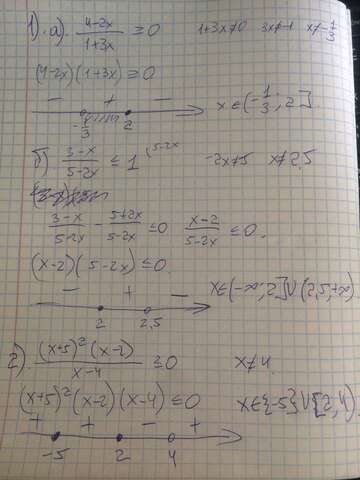 1). а). (4-2x)/(1+3x) ≥ 0   1+3x≠0   3x≠-1   x≠-1/3
(4-2x)(1+3x) ≥ 0
-   +   -   x ∈ (-1/3; 2].
-1/3   2
б) (3-x)/(5-2x) ≤ 1 (5-2x   -2x≠5   x≠2,5
(3-x)/(5-2x) - (5+2x)/(5-2x) ≤ 0   (x-2)/(5-2x) ≤ 0.
(x-2)(5-2x) ≤ 0.
-   +   -   x∈(-∞; 2]V(2,5;+∞)
2   2,5
2). (x+5)²(x-2)/(x-4) ≥ 0   x≠4.
(x+5)²(x-2)(x-4) ≤ 0   x∈{-5}V[2;4)
+   +   -   +
-5   2   4